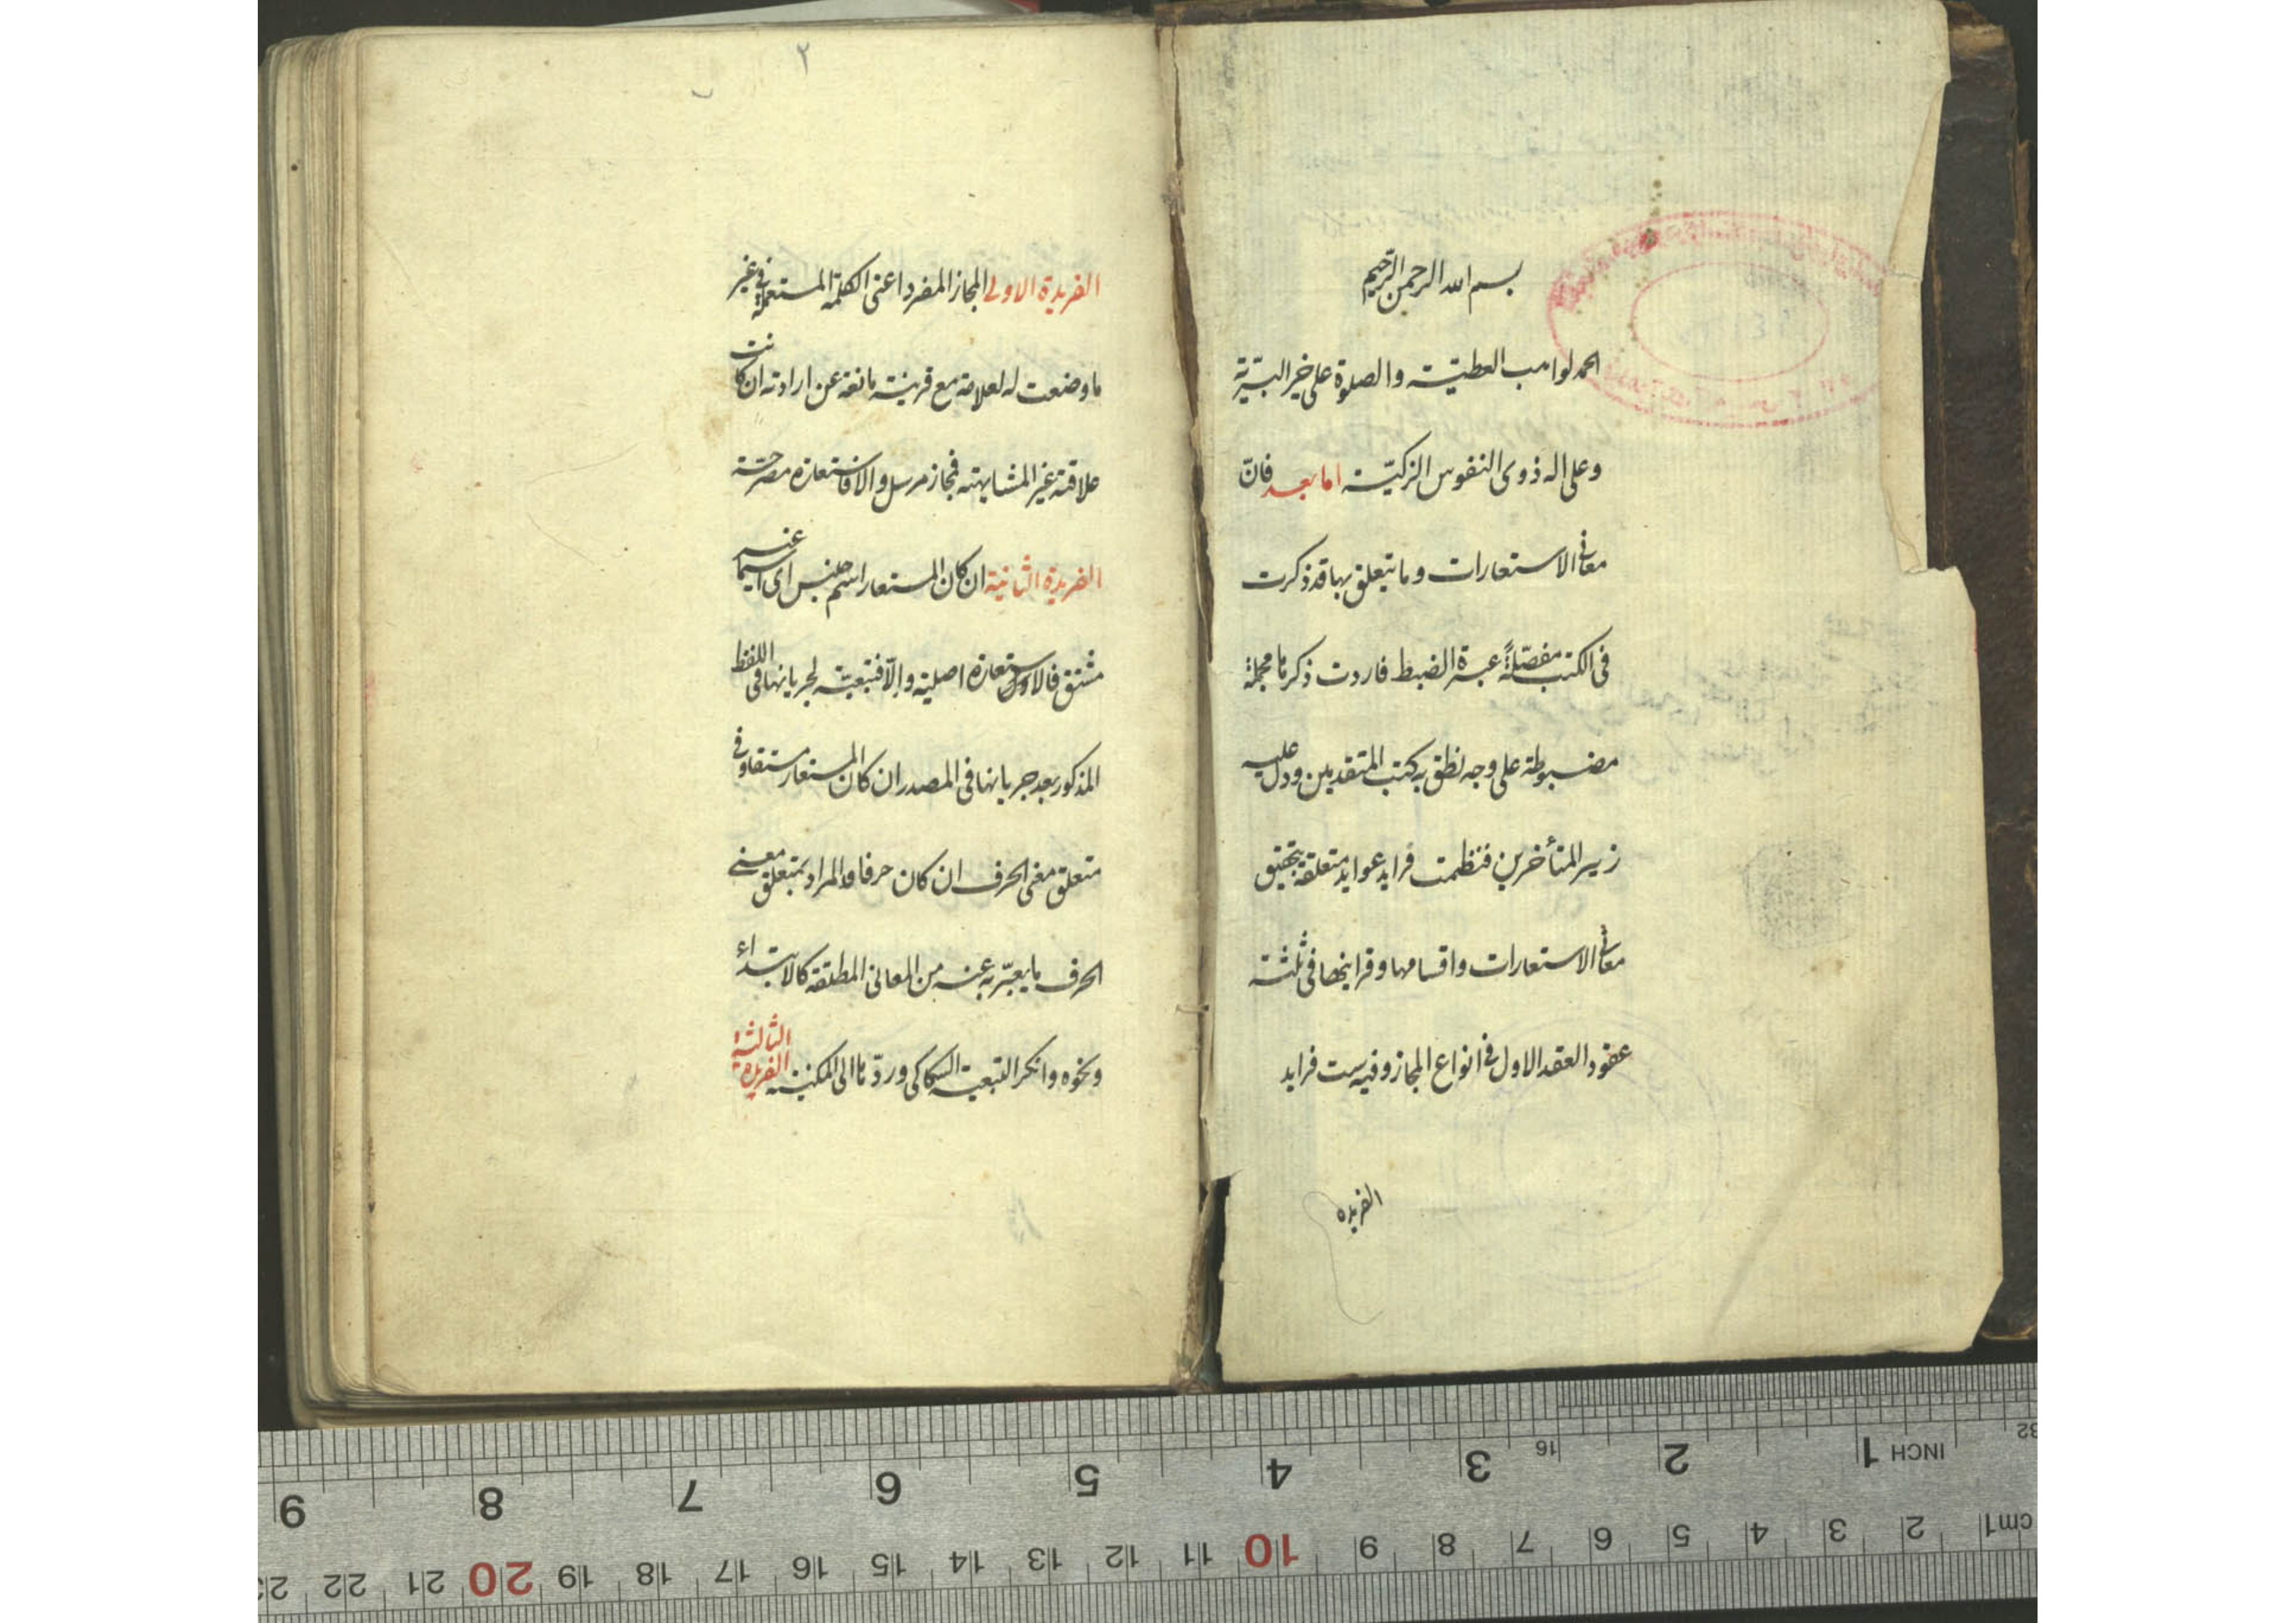 بسم الله الرحمن الرحيم
الحمد لواهب العطيّة والصلوة على خير البريّة
وعلى اله ذوى النفوس الزكيّة اما بعد فانّ
معانى الاستعارات وما يتعلق بها قد ذكرت
فى الكتب مفصّلةً عسرة الضبط فاردت ذكرها مجملة
مضبوطة على وجه نطق به كتب المتقدمين ودل عليه
زبر المتأخرين فنظمت فرايد عوايد متعلقة بتحقيق
معانى الاستعارات واقسامها وقراينها فى ثلثة
عقود العقد الاول فى انواع المجاز وفيه ست فرايد
الفريده
٢
الفريدة الاولى المجاز المفرد اعنى الكلمة المستعملة فى غير
ما وضعت له لعلاقة مع قرينة مانعة عن ارادته ان كانت
علاقته غير المشابهة فمجاز مرسل والا فاستعارة مصرحة
الفريدة الثانية ان كان المستعار اسم جنس اى اسما غير
مشتق فالاستعارة اصلية والّا فتبعية لجريانها فى اللفظ
المذكور بعد جريانها فى المصدر ان كان المستعار مشتقا وفى
متعلق معنى الحرف ان كان حرفا والمراد بمتعلق معنى
الحرف ما يعبّر به عنه من المعانى المطلقة كالابتداء
ونحوه وانكر التبعية السكاكى وردّها الى المكنية الفريدة الثالثة
9 8 7 6 5 4 3 16 2 1 INCH 32
23 22 21 20 19 18 17 16 15 14 13 12 11 10 9 8 7 6 5 4 3 2 1 cm